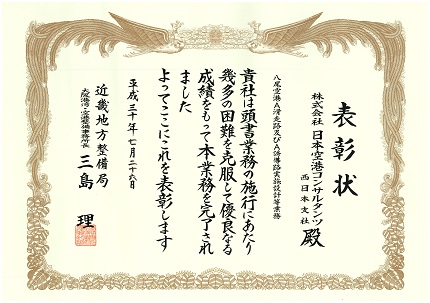 表彰状
株式会社 日本空港コンサルタンツ
西日本支社
殿
八尾空港A滑走路及びA誘導路実施設計等業務
貴社は頭書業務の施行にあたり
幾多の困難を克服して優良なる
成績をもって本業務を完了され
ました
よってここにこれを表彰します
平成三十年七月二十六日
近畿地方整備局
大阪港湾・空港整備事務所長
三島 理